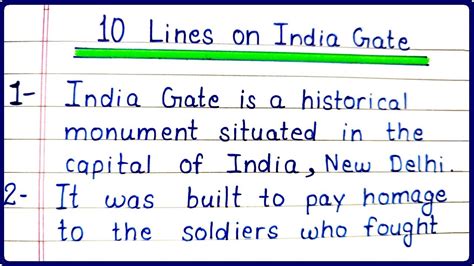 10 Lines on India Gate
1- India Gate is a historical
monument situated in the
capital of India, New Delhi.
2- It was built to pay homage
to the soldiers who fought